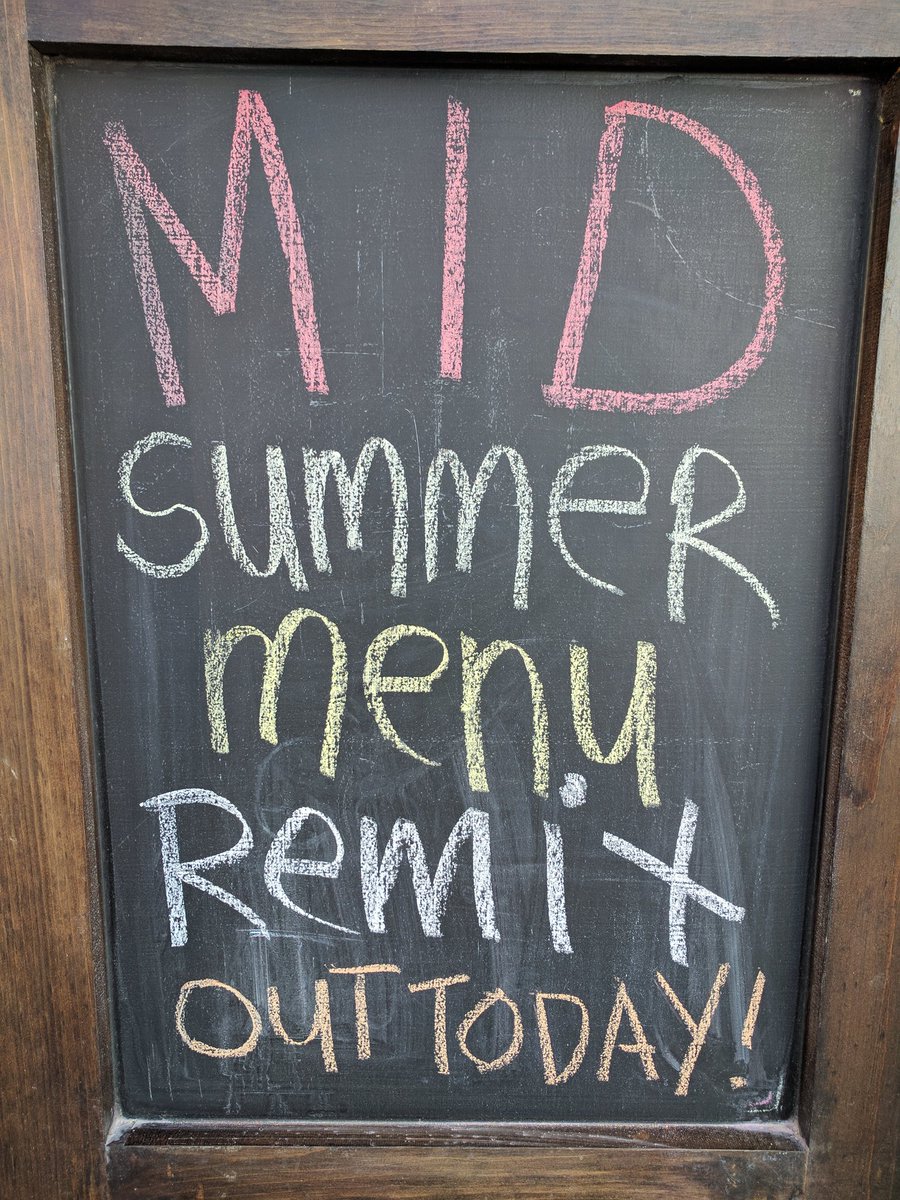 MID
SummeR
menu
Remix
OUT TODAY!